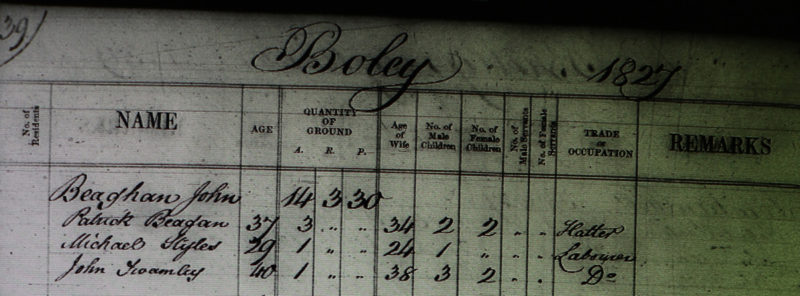 39)
Boley 1827
No. of Residents NAME AGE QUANTITY OF GROUND A. R. P. Age of Wife No. of Male Children No. of Female Children No. of Male Servants No. of Female Servants TRADE OR OCCUPATION REMARKS
Beaghan John 14 3 30
Patrick Beagan 37 3 " " 34 2 2 " . Hatter
Michael Styles 29 1 " " 24 1 " " . Labourer
John Twamley 40 1 " " 38 3 2 . . Do